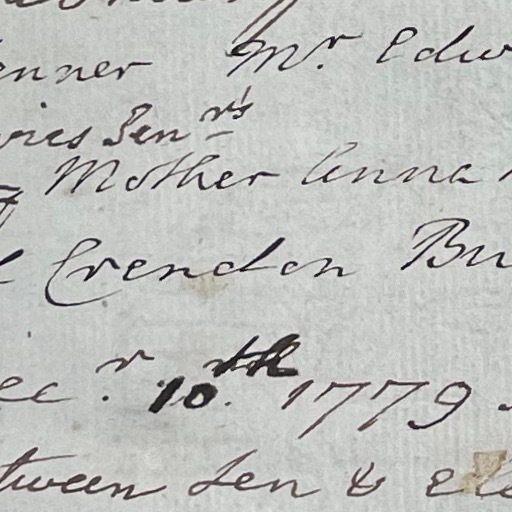 enner Mr. Edw
Senrs
Mother Anna
Crendon Bu
ecr. 10th 1779.
tween ten & ele